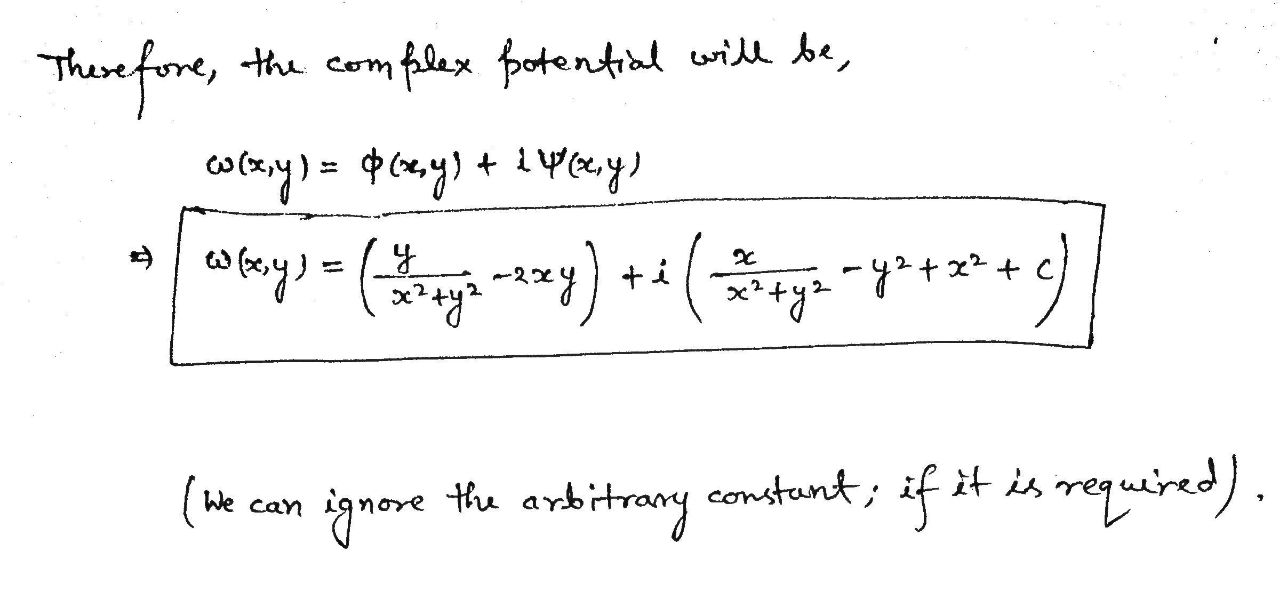 Therefore, the complex potential will be,
ω(x,y) = φ(x,y) + i ψ(x,y)
⇒ ω(x,y) = (y/(x²+y²) - 2xy) + i (x/(x²+y²) - y² + x² + c)
(We can ignore the arbitrary constant; if it is required).